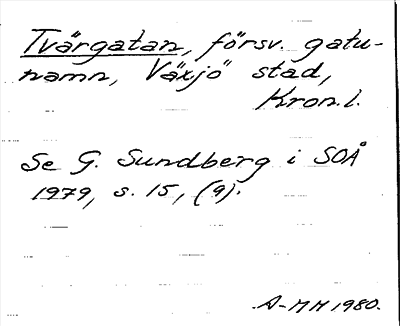 Tvärgatan, försv. gatu-
namn, Växjö stad,
Kron.l.
Se G. Sundberg i SOÅ
1979, s. 15, (9).
A-MH 1980.